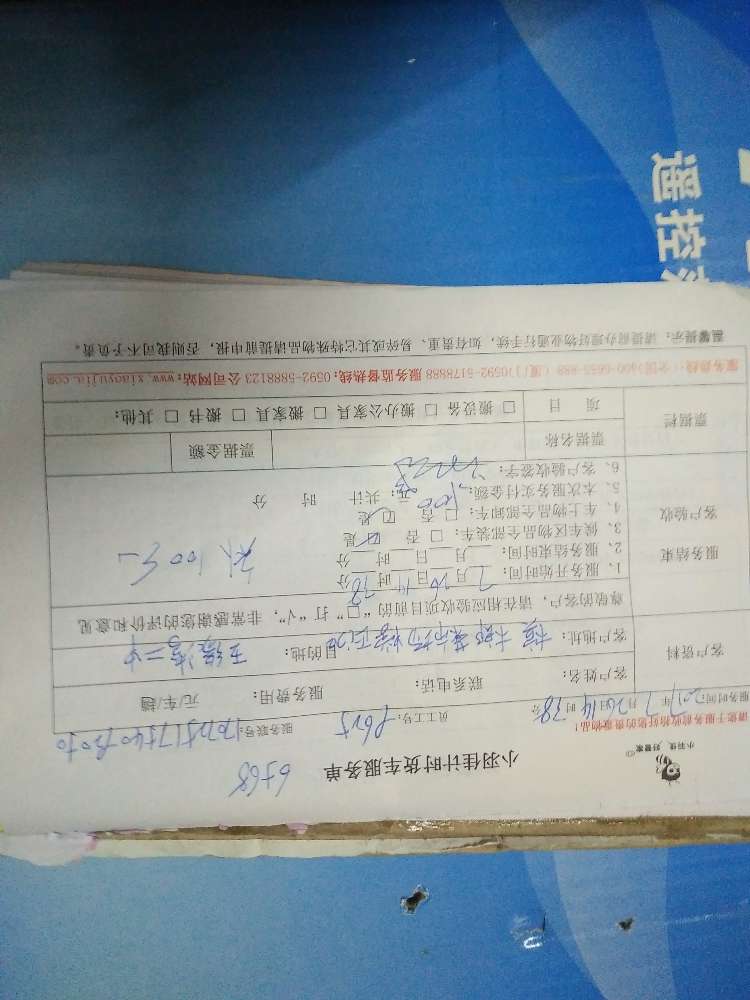 小羽佳 好管家
小羽佳计时货车服务单
6568
请您于服务前收拾好您的贵重物品!
服务时间:2017年7月26日14时38分 员工工号:P615 服务联号:
客户资料
客户姓名: 联系电话: 服务费用: 元/车/趟
客户地址: 目的地:
服务结束
客户验收
尊敬的客户,请在相应验收项目前的“□”打“√”,非常感谢您的评价和意见
1、服务开始时间:7月26日14时38分
2、服务结束时间: 月 日 时 分
3、候车区物品全部装车:□ 否 ☑ 是
4、车上物品全部卸车:□ 否 ☑ 是
5、本次服务实付金额:100元;共计 时 分
6、客户验收签字:
票据栏
票据名称 票据金额
项 目 □ 搬设备 □ 搬办公家具 □ 搬家具 □ 搬书 □ 其他:
服务热线:(全国)400-6655-888 (厦门)0592-5178888 服务监督热线:0592-5888123 公司网站:www.xiaoyujia.com
温馨提示:请提前办理好物业通行手续,如有贵重、易碎或其它特殊物品请提前申报,否则我司不予负责。
遥控